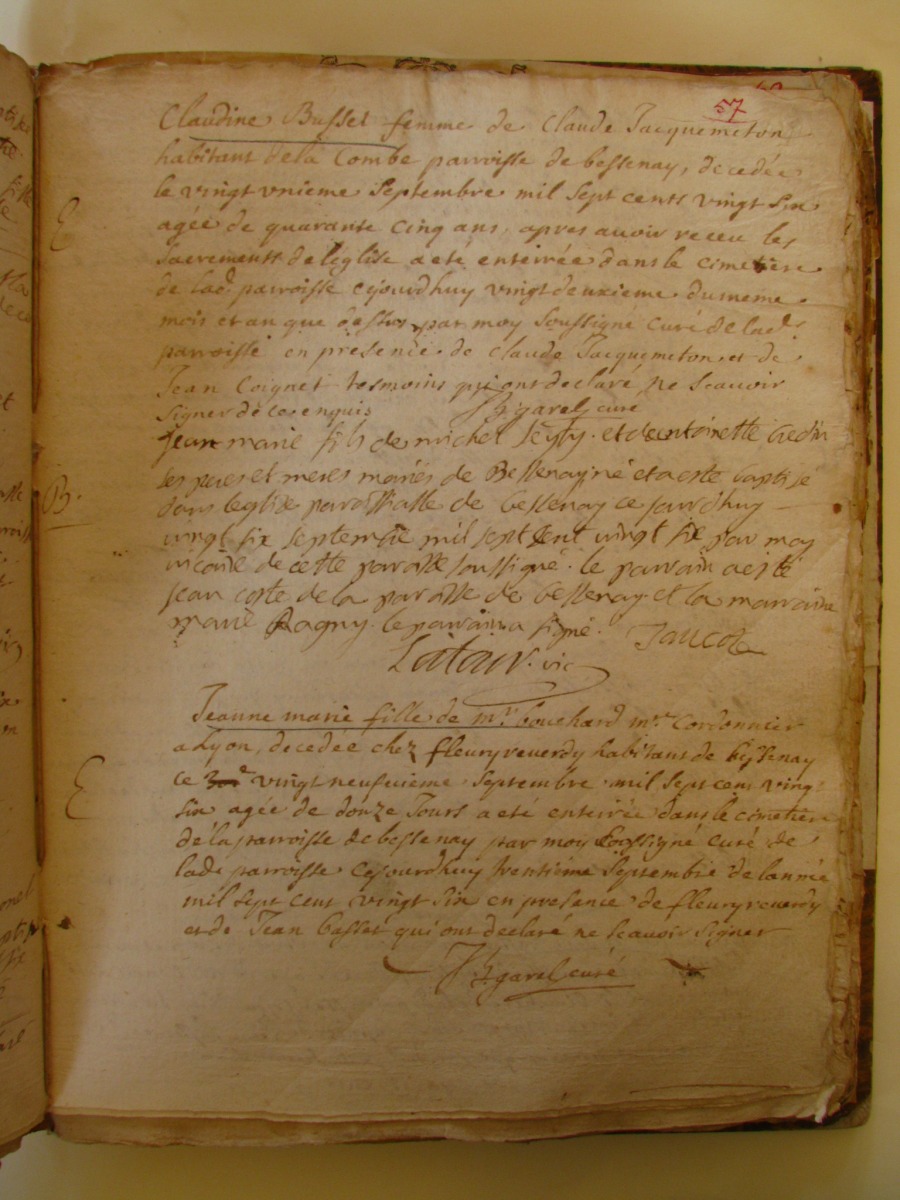 57
Claudine Busset femme de Claude Jacquemeton
habitant de la Combe parroisse de bessenay, decedée
le vingt vnieme Septembre mil Sept cents vingt Six
E
agée de quarante cinq ans, apres auoir receu les
Sacrements de l'eglise a eté enterrée dans le cimetiere
de lad. parroisse cejourdhuy vingt deuxieme du meme
mois et an que dessus par moy Soussigné curé de lad.
parroisse en presence de Claude Jacquemeton et de
Jean Coignet tesmoins qui ont declaré ne Scauoir
Signer de ce enquis garel curé
Jean marie fils de michel et de antoinette
ses peres et meres mariés de Bessenay né et a esté baptisé
B.
dans leglise paroissialle de bessenay ce jourdhuy
vingt six septembre mil sept cent vingt six par moy
vicaire de cette paroisse soussigné. le parrain a esté
jean coste de la paroisse de bessenay et la marraine
marie Ragny. le parrain a signé.
vic
Jeanne marie fille de mr. bouchard mre. Cordonnier
a Lyon, decedée chez fleury reuerdy habitant de bessenay
ce vingt neufuieme Septembre mil Sept cent vingt
E
Six agée de douze Jours a eté enterrée dans le cimetiere
de la parroisse de bessenay par moy Soussigné curé de
lad. parroisse cejourdhuy trentième Septembre de lannée
mil Sept cent vingt Six en presance de fleury reuerdy
et de Jean basset qui ont declaré ne Scauoir Signer
garel curé